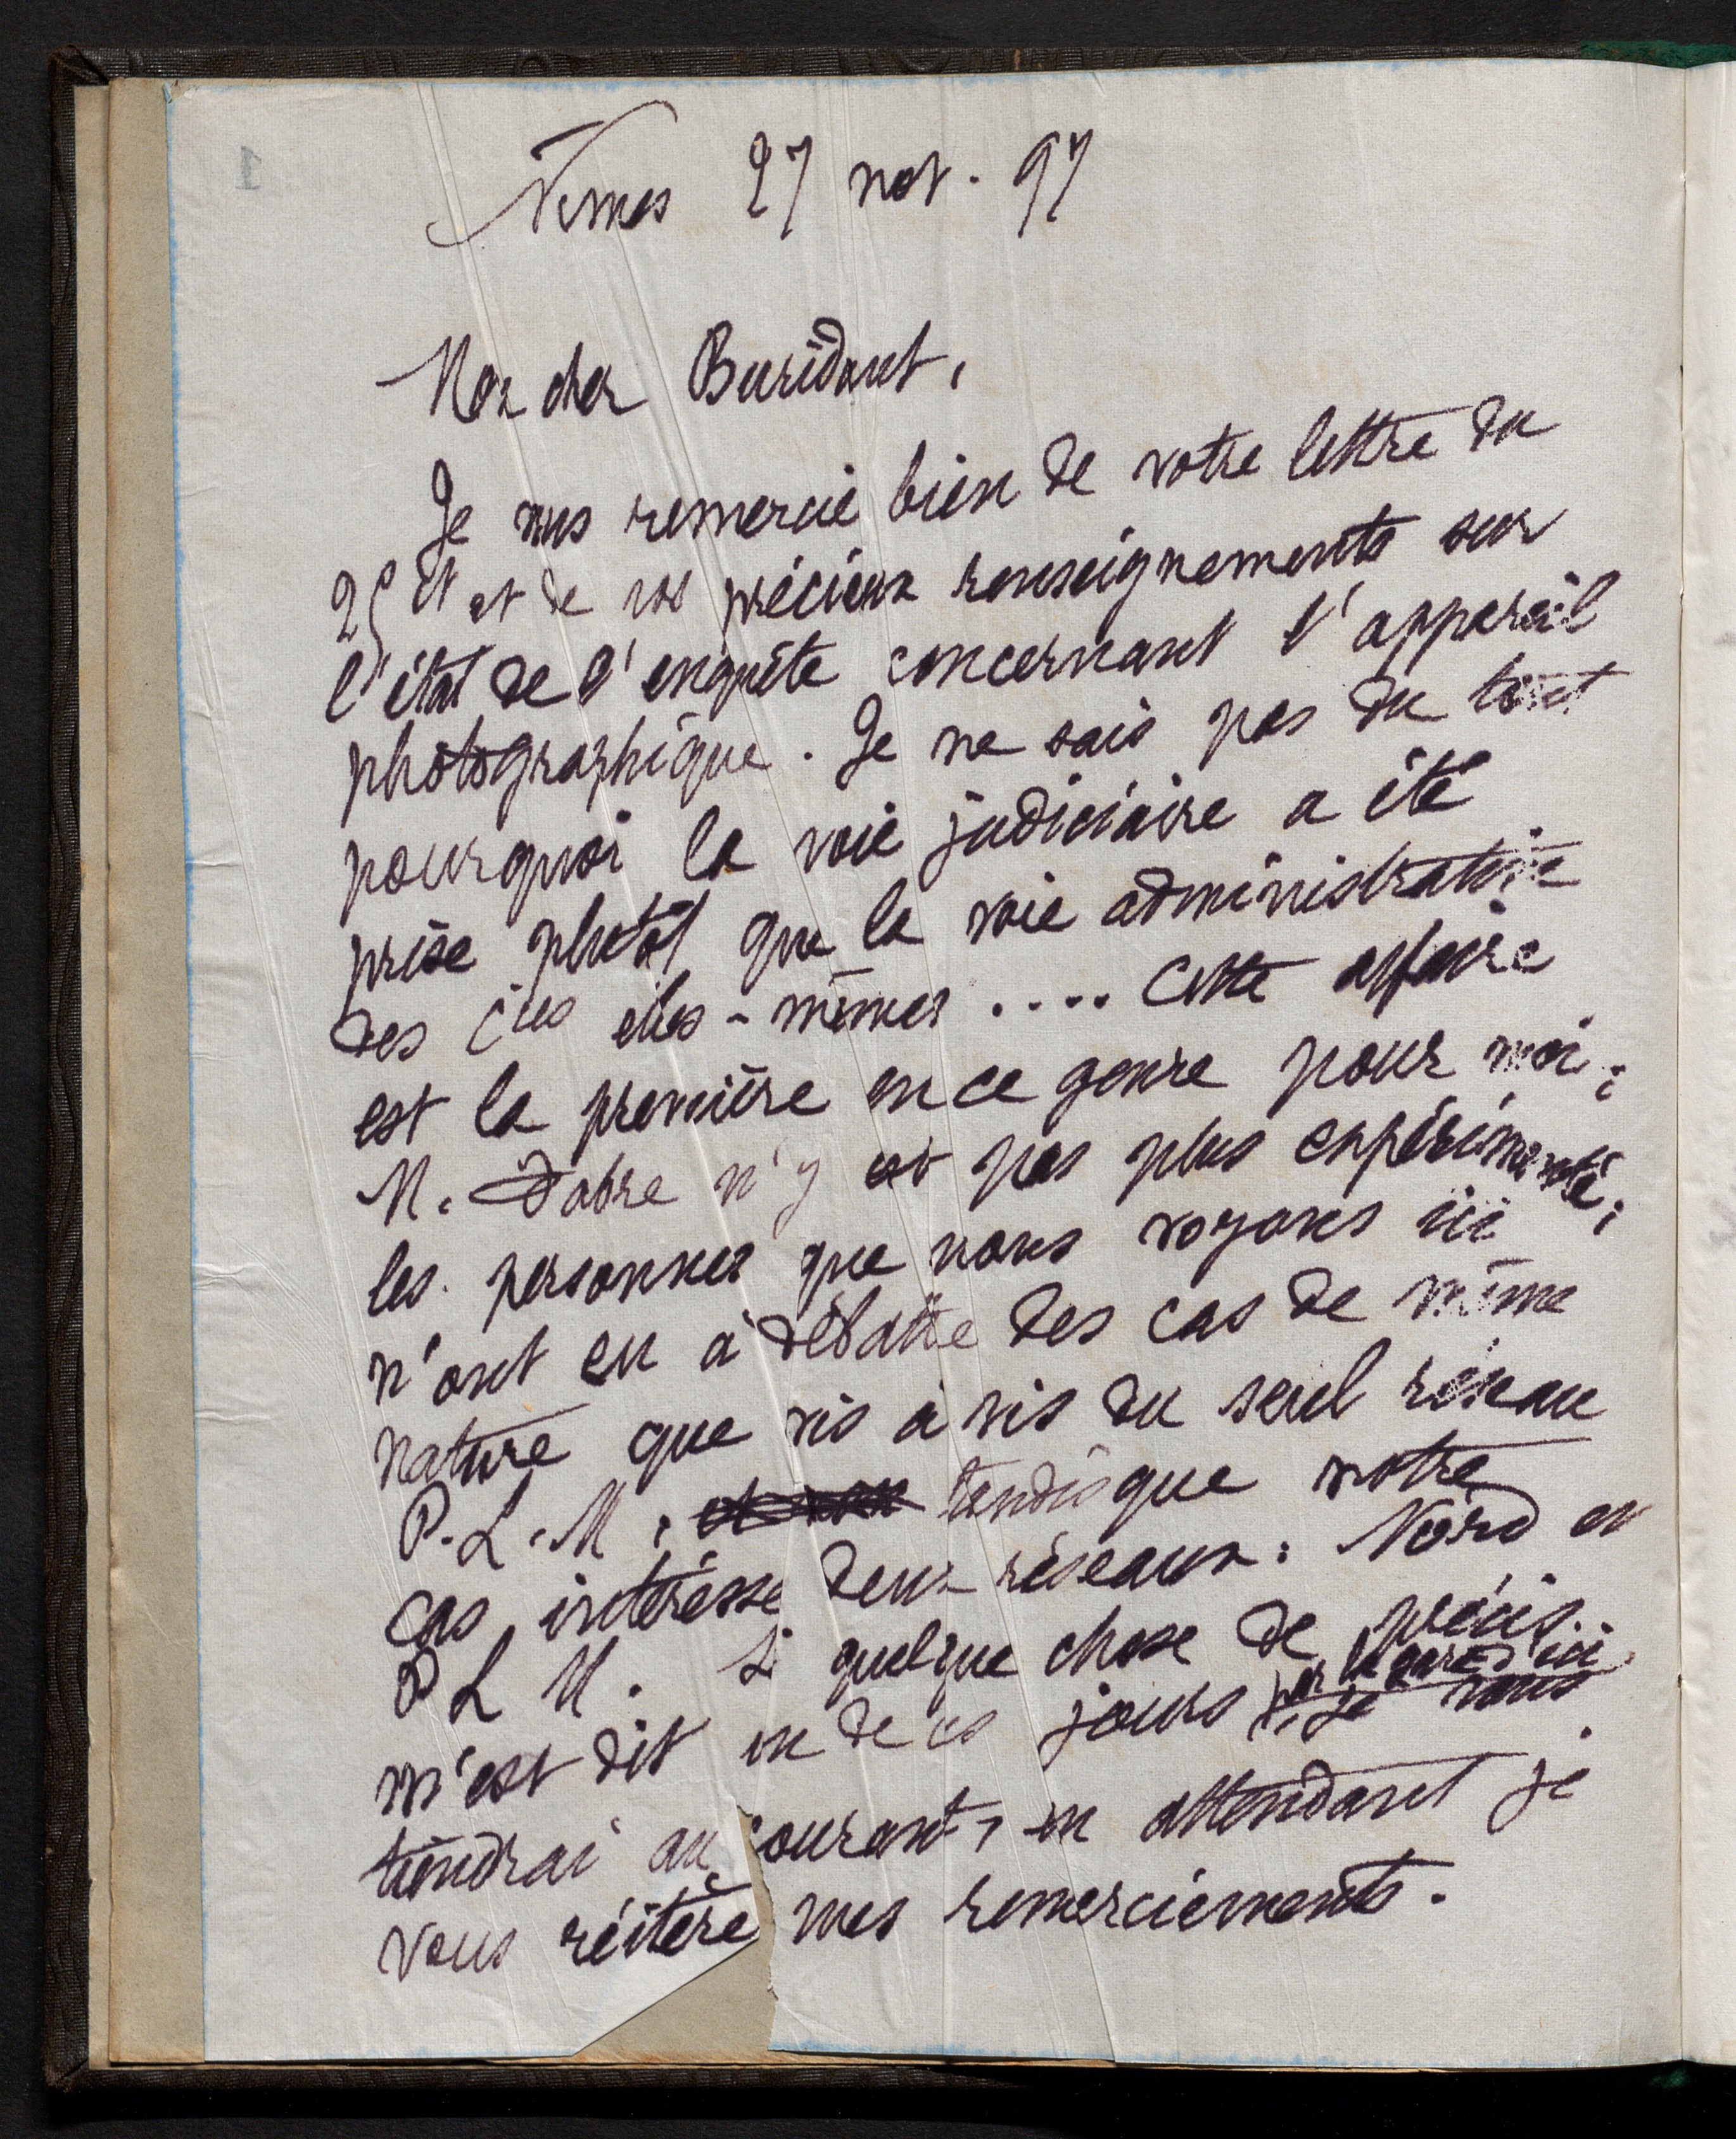 1
Nimes 27 nov. 97
Mon cher Buridant,
Je vous remercie bien de votre lettre du
25 ct et de vos précieux renseignements sur
l'état de l'enquête concernant l'appareil
photographique. Je ne sais pas du tout
pourquoi la voie judiciaire a été
prise plutôt que la voie administrative
des Cies elles-mêmes .... Cette affaire
est la première en ce genre pour moi;
M. Fabre n'y est pas plus expérimenté;
les personnes que nous voyons ici
n'ont eu à débattre des cas de même
nature que vis à vis du seul réseau
P.L.M, tandis que notre
cas intéresse deux réseaux: Nord et
P L M. Si quelque chose de précis
m'est dit un de ces jours par la gare d'ici je vous
tiendrai au courant, en attendant je
vous réitère mes remerciements.